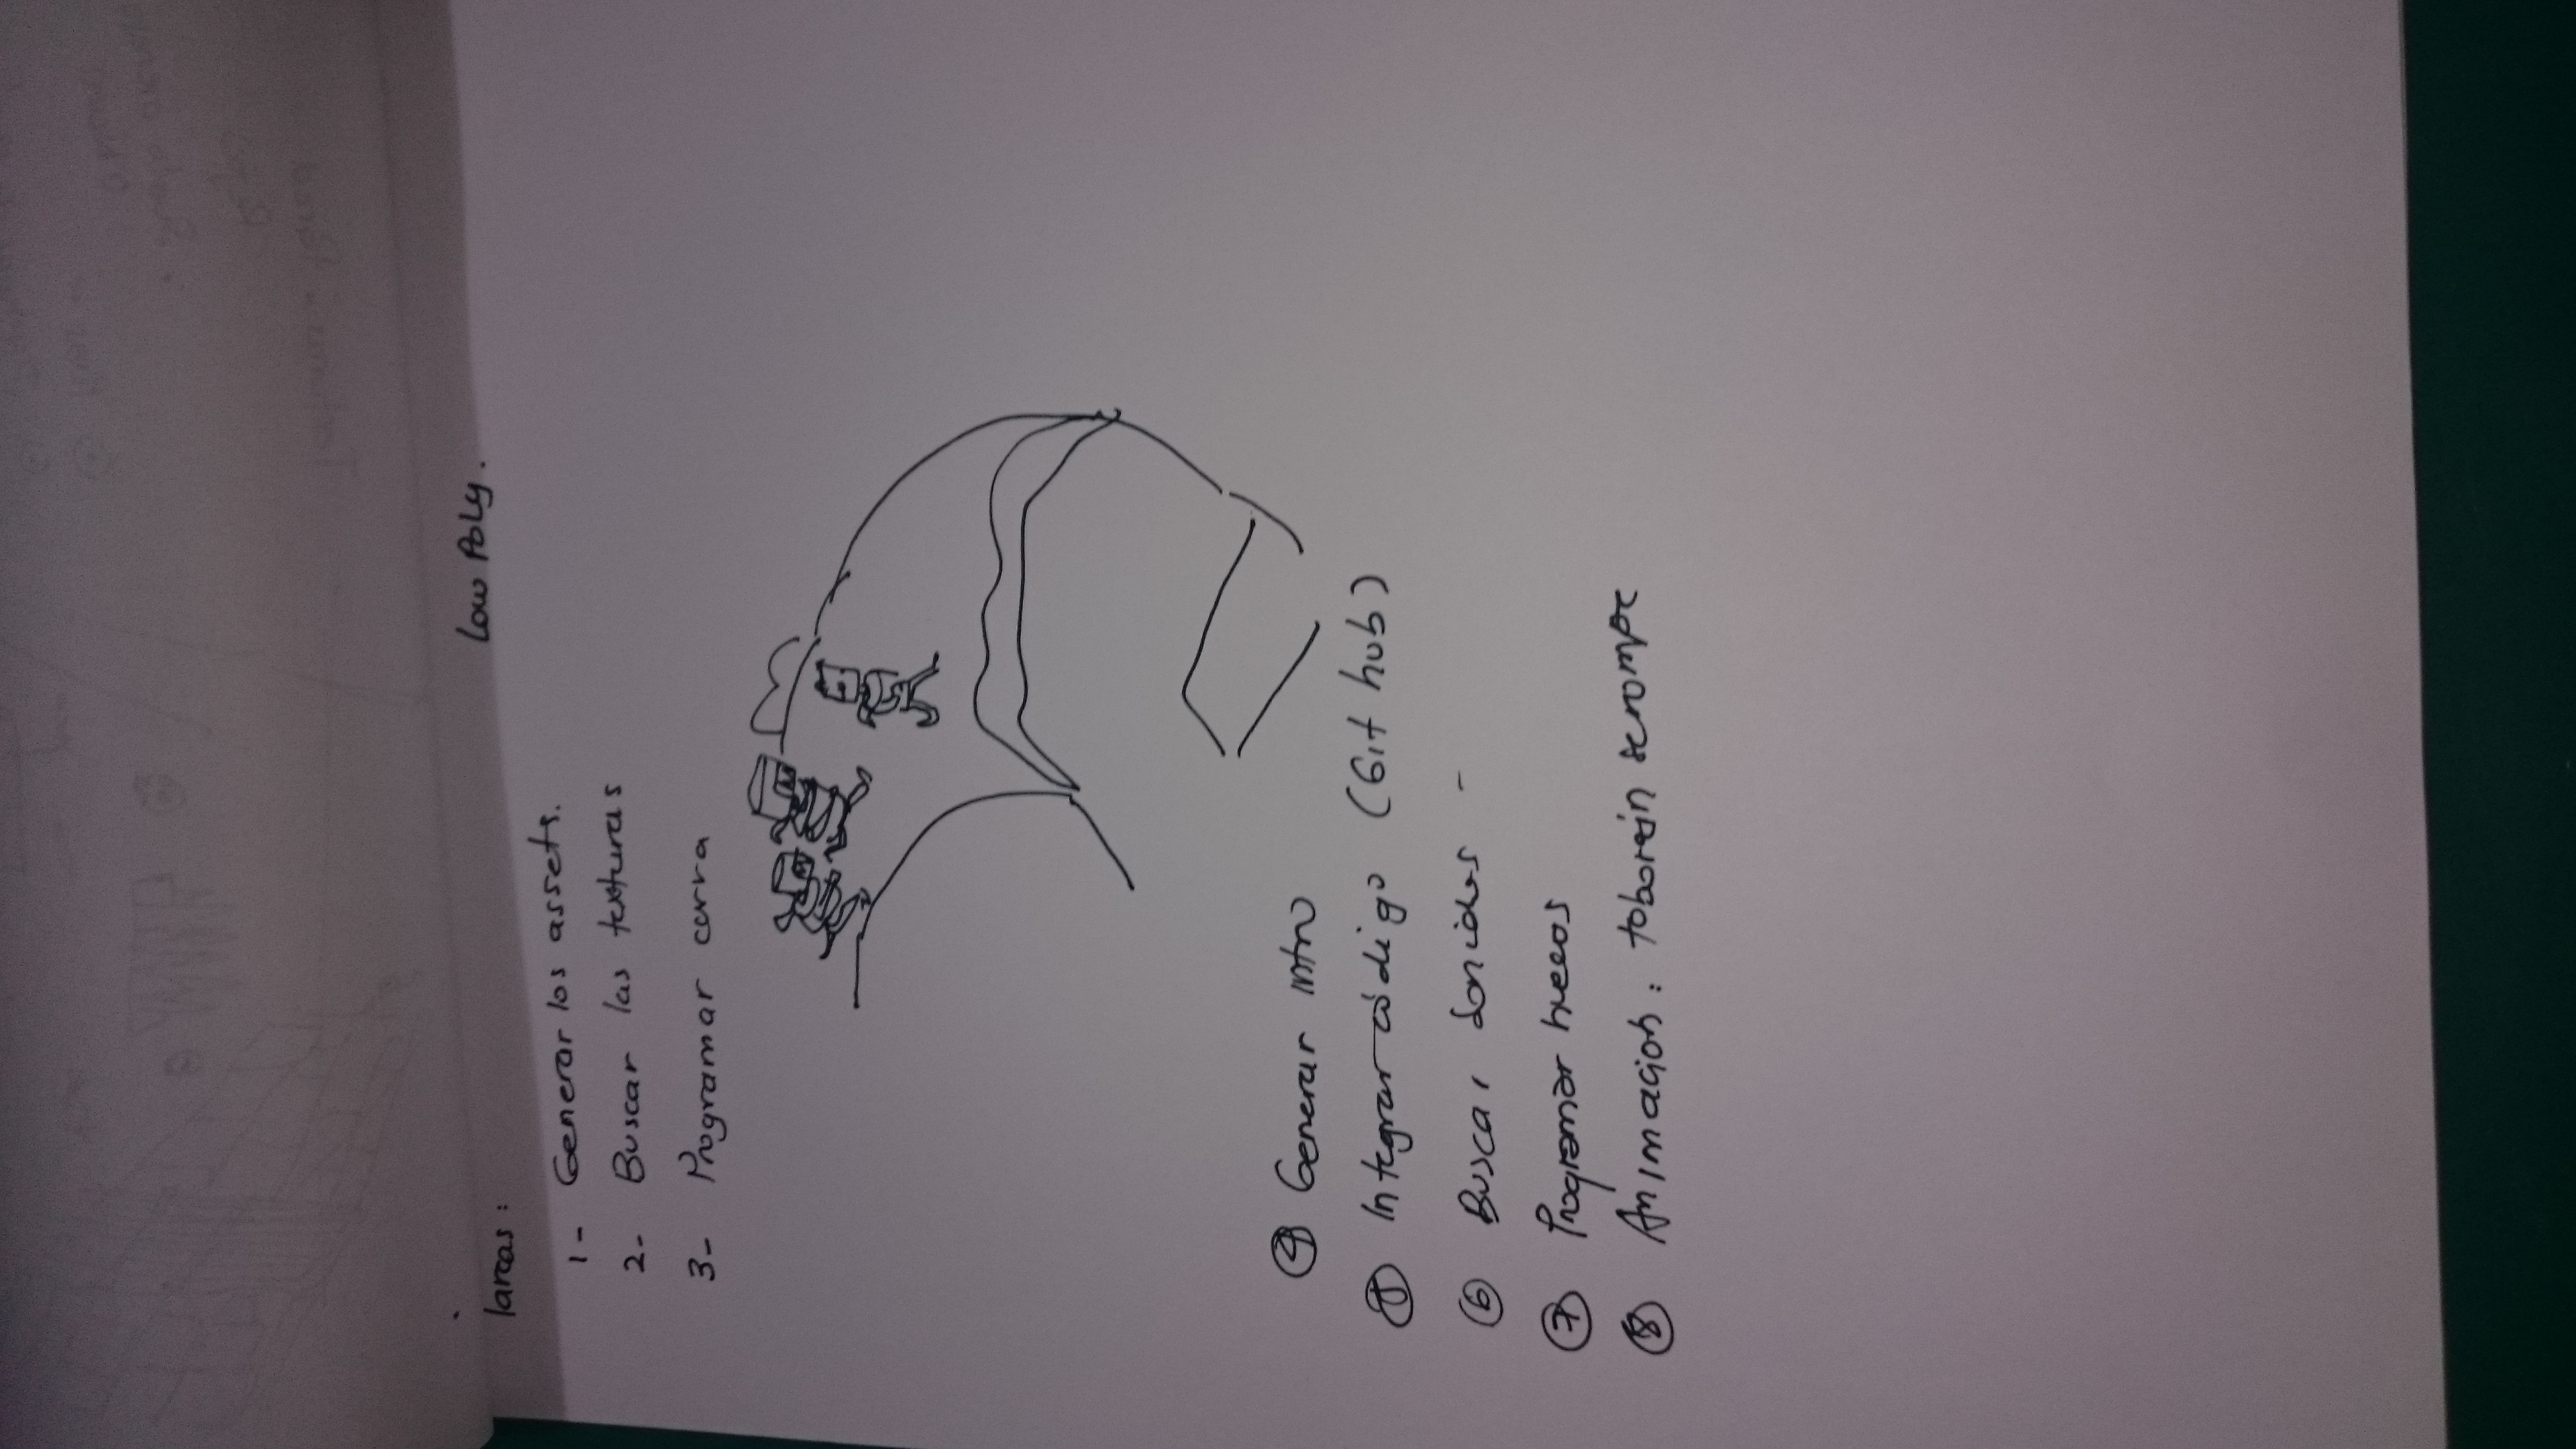 Tareas:
Low Poly.
1- Generar los assets.
2- Buscar las texturas
3- Programar corra
4 Generar intro
Integrar código (Git hub)
6 Buscar sonidos -
7 Programar huecos
8 Animación: se rompe